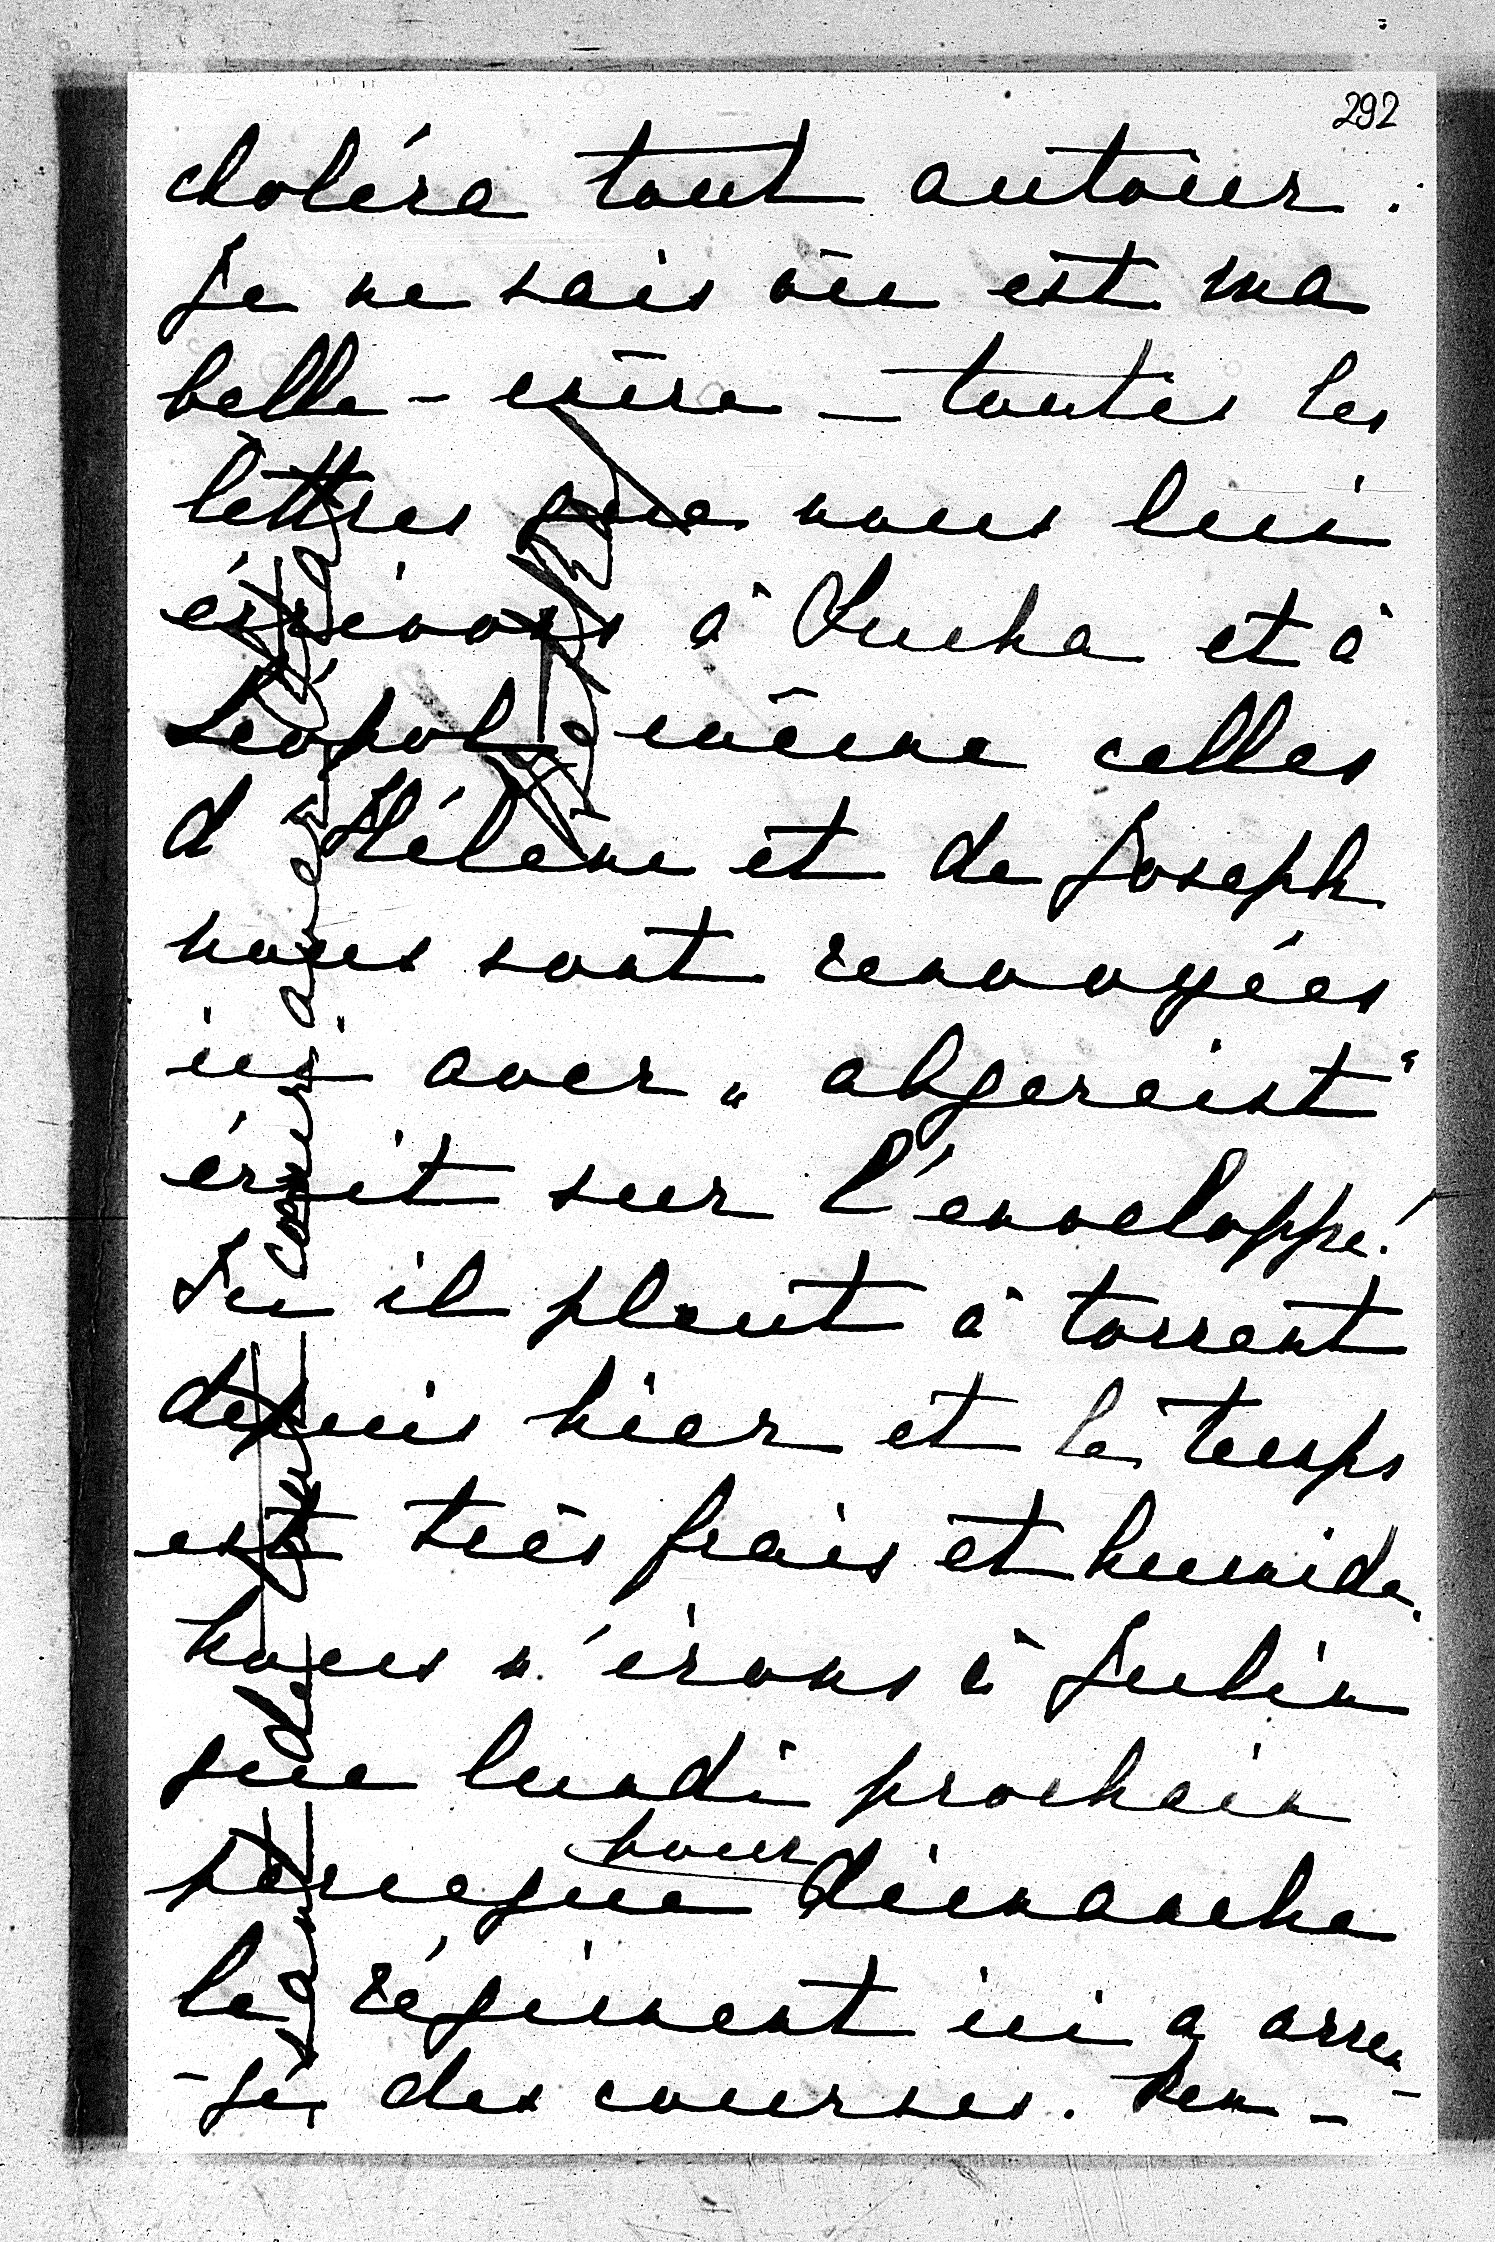 292
choléra tout autour.
Je ne sais où est ma
belle-mère – toutes les
lettres que nous lui
écrivons à Lucka et à
Léopol, même celles
d'Hélène et de Joseph
nous sont renvoyées
ici avec „abgereist“
écrit sur l'enveloppe!
Ici il pleut à torrent
depuis hier et le temps
est très frais et humide,
nous n'irons à Julin
que lundi prochain
parceque pour Dimanche
le régiment ici a arran-
-gé des courses. Pen-